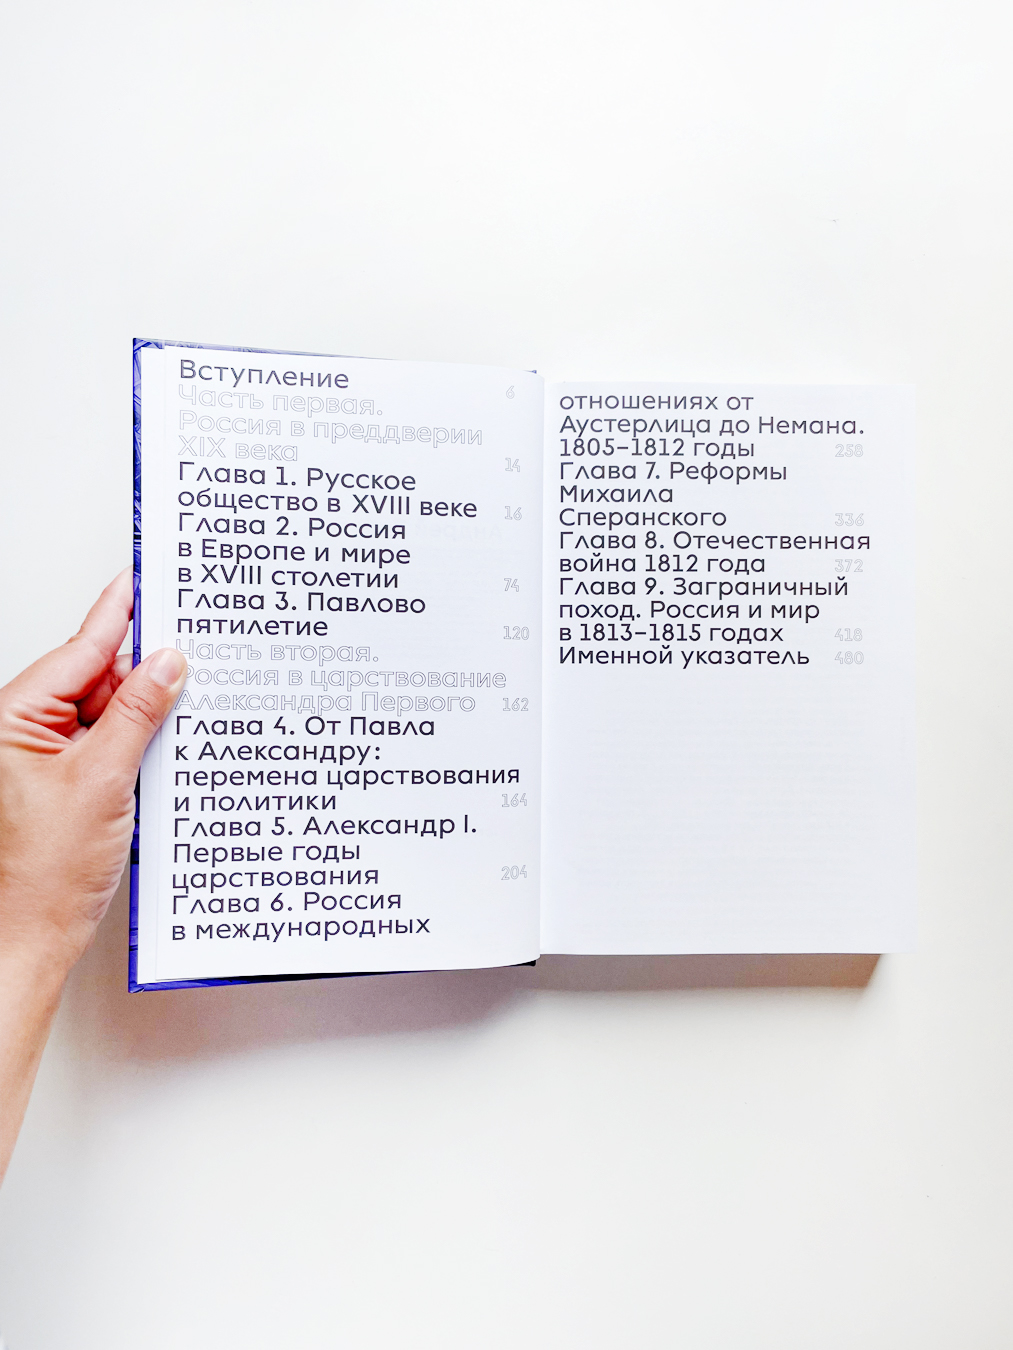 Вступление 6
Часть первая.
Россия в преддверии
XIX века 14
Глава 1. Русское
общество в XVIII веке 16
Глава 2. Россия
в Европе и мире
в XVIII столетии 74
Глава 3. Павлово
пятилетие 120
Часть вторая.
Россия в царствование
Александра Первого 162
Глава 4. От Павла
к Александру:
перемена царствования
и политики 164
Глава 5. Александр I.
Первые годы
царствования 204
Глава 6. Россия
в международных
отношениях от
Аустерлица до Немана.
1805–1812 годы 258
Глава 7. Реформы
Михаила
Сперанского 336
Глава 8. Отечественная
война 1812 года 372
Глава 9. Заграничный
поход. Россия и мир
в 1813–1815 годах 418
Именной указатель 480